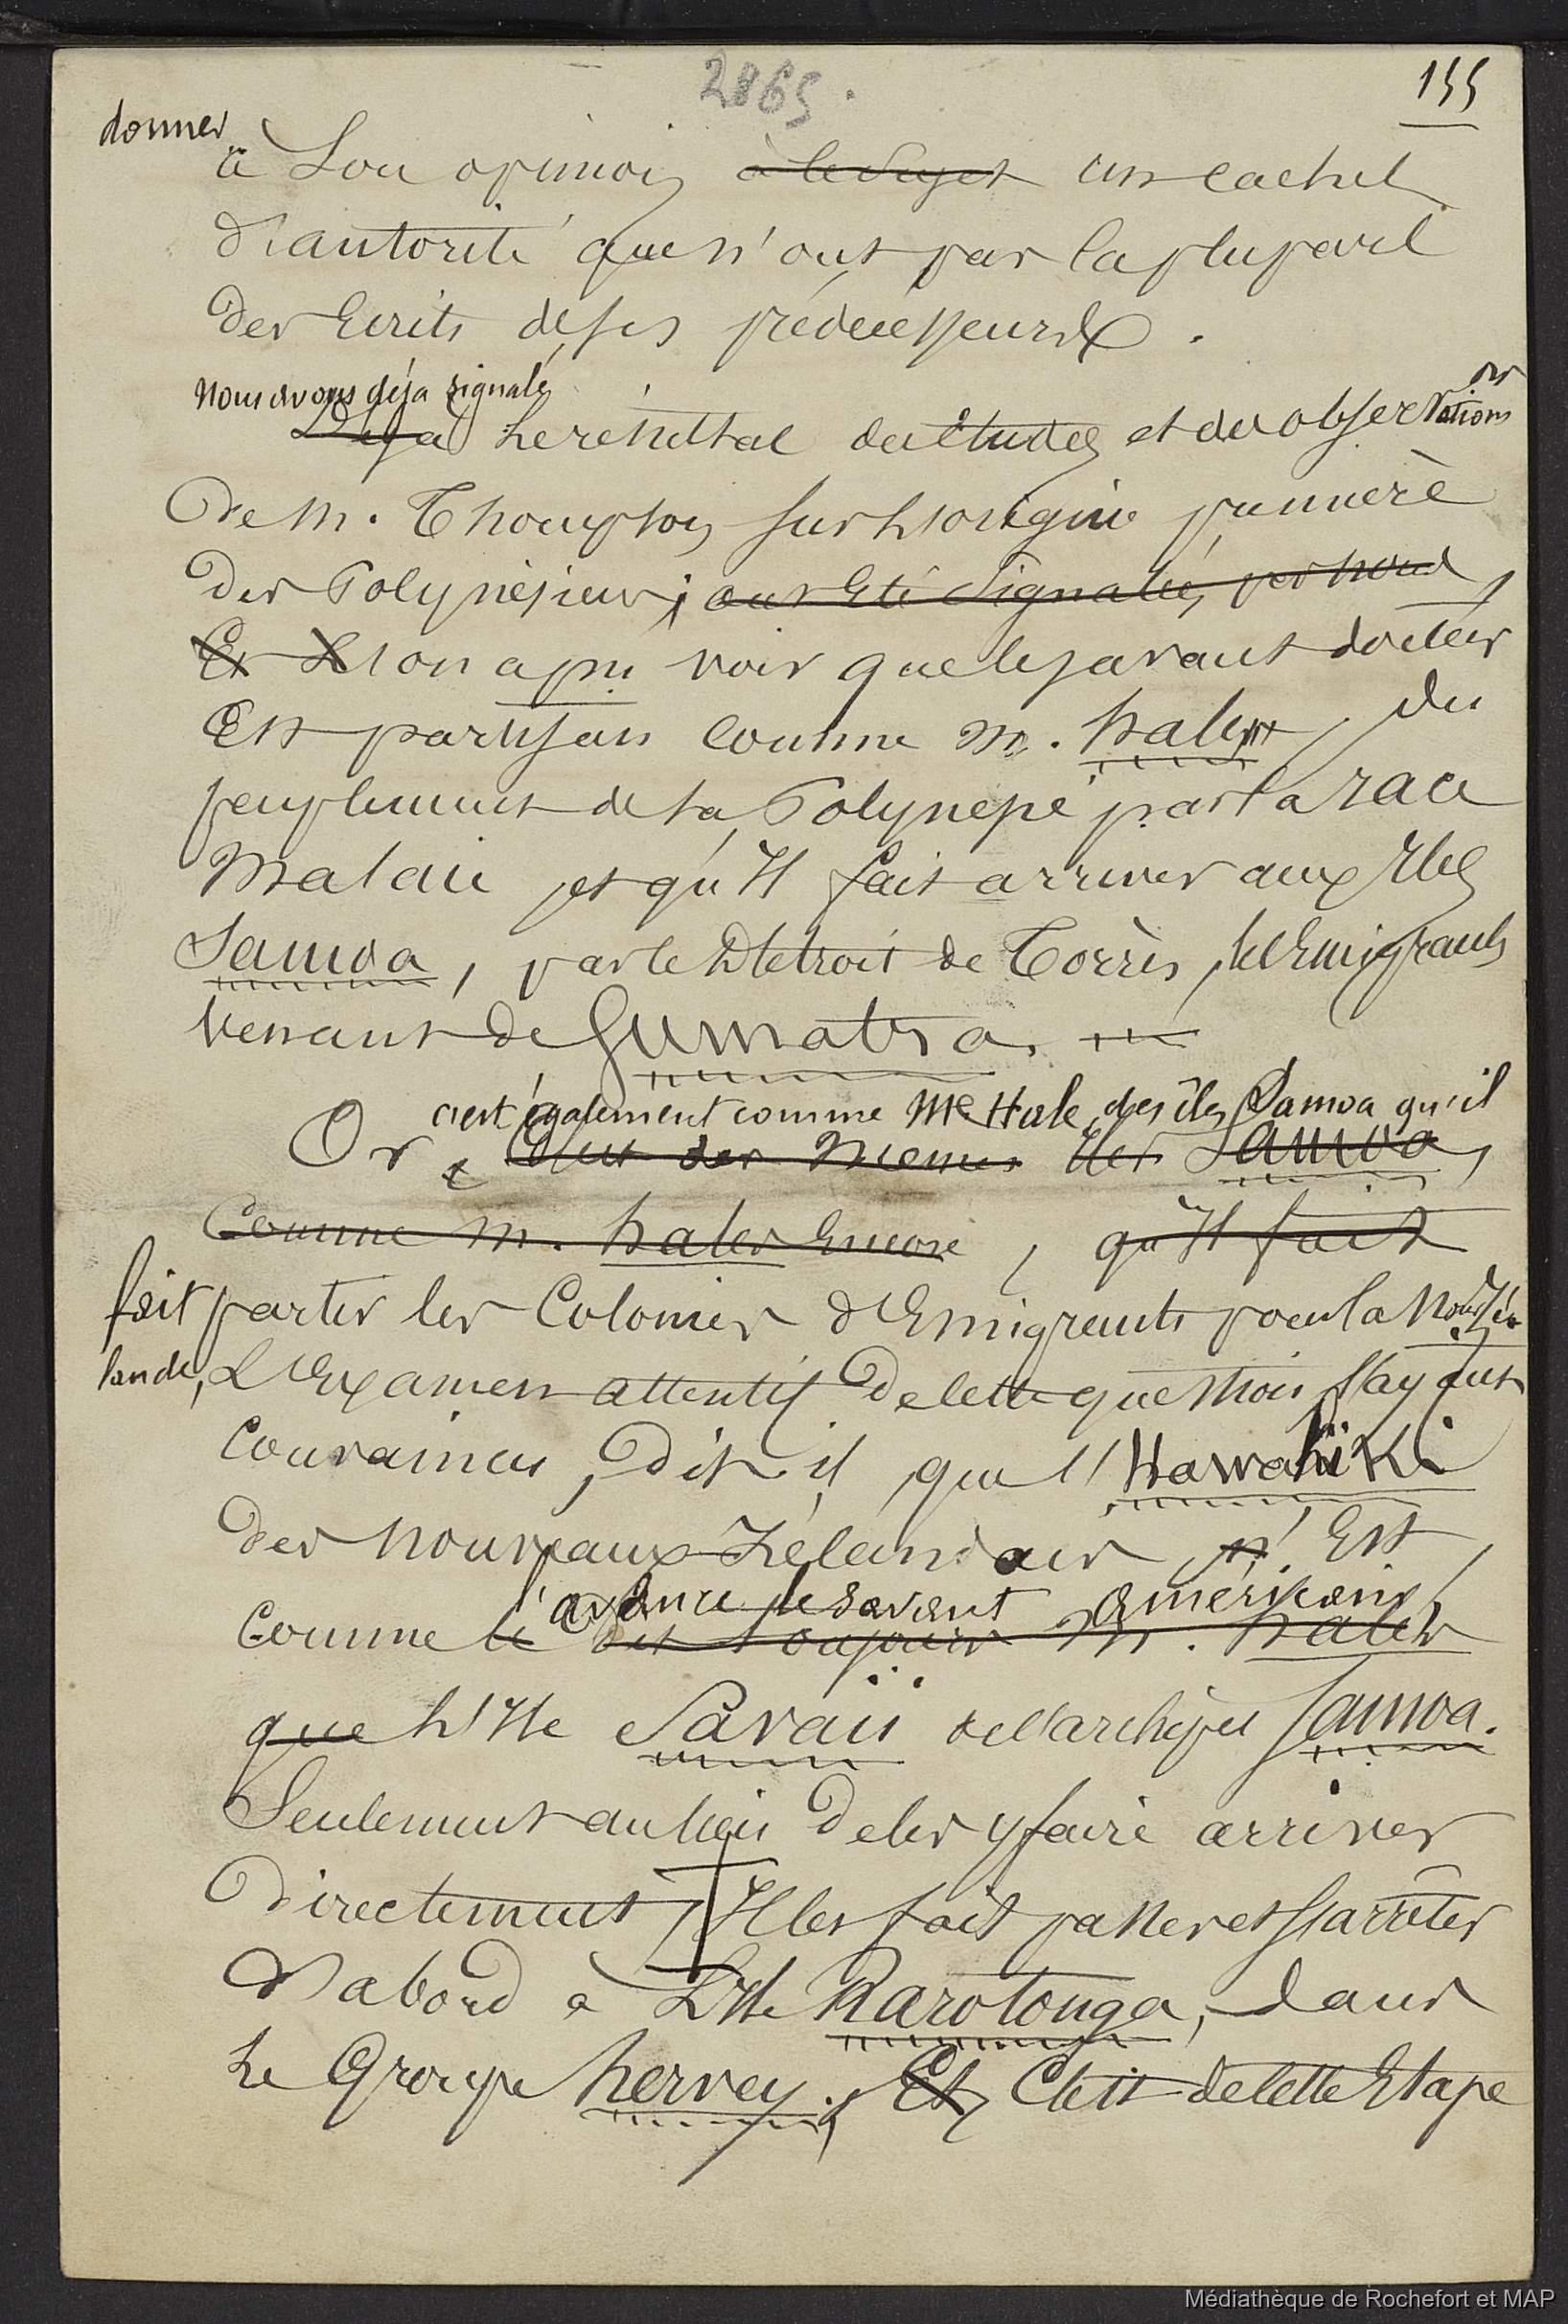 2865.
155
donner
à Son opinion à ce Sujet un cachet
d'autorité que n'ont pas la plupart
des Ecrits de ses prédécesseurs.
Nous avons déja signalé
Déja Le résultat des études et des observations
De M. Thompson sur L'origine première
Des Polynésiens; ont Eté Signalés par nous,
Et L'on a pu voir que le savant docteur
Est partisan comme M. hales, du
peuplement de la Polynésie par la race
Malaie et qu'Il fait arriver aux Iles
Samoa, par le Détroit de Torrès, les Emigrants
Venant de Sumatra.
c'est également comme Mr Hale, des îles Samoa qu'il
Or, C'est des mêmes Iles Samoa,
Comme M. hales Encore, qu'Il fait
fait partir les Colonies d'Emigrants pour la Nouv. Zé-
lande, L'Examen attentif De cette question l'ayant
Convaincu, Dit-il, que l'Hawahiki
Des Nouveaux-Zélandais, n'Est
l'avance le savant américain
Comme le dit toujours M. hales
que L'Ile Savaii de l'archipel Samoa.
Seulement au lieu De les y faire arriver
Directement, Il les fait passer et s'arrêter
D'abord à L'Ile Rarotonga, dans
Le Groupe hervey; Et C'est de cette Etape
Médiathèque de Rochefort et MAP